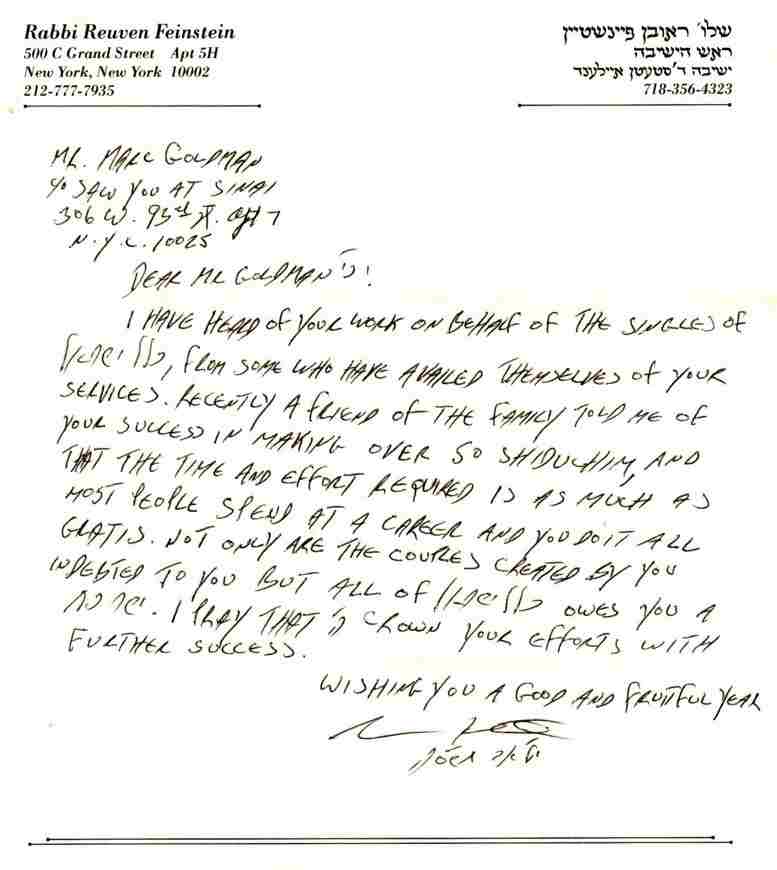 Rabbi Reuven Feinstein
500 C Grand Street Apt 5H
New York, New York 10002
212-777-7935
שלו׳ ראובן פיינשטיין
ראש הישיבה
ישיבה ד'סטעטן איילענד
718-356-4323
MR. MARC GOLDMAN
c/o SAW YOU AT SINAI
306 W. 93rd St. apt 7
N.Y.C. 10025
DEAR MR GOLDMAN נ"י!
I HAVE HEARD OF YOUR WORK ON BEHALF OF THE SINGLES OF
כלל ישראל, FROM SOME WHO HAVE AVAILED THEMSELVES OF YOUR
SERVICES. RECENTLY A FRIEND OF THE FAMILY TOLD ME OF
YOUR SUCCESS IN MAKING OVER 50 SHIDUCHIM, AND
THAT THE TIME AND EFFORT REQUIRED IS AS MUCH AS
MOST PEOPLE SPEND AT A CAREER AND YOU DO IT ALL
GRATIS. NOT ONLY ARE THE COUPLES CREATED BY YOU
INDEBTED TO YOU BUT ALL OF כלל ישראל OWES YOU A
I PRAY THAT ה' CROWN YOUR EFFORTS WITH
FURTHER SUCCESS.
WISHING YOU A GOOD AND FRUITFUL YEAR